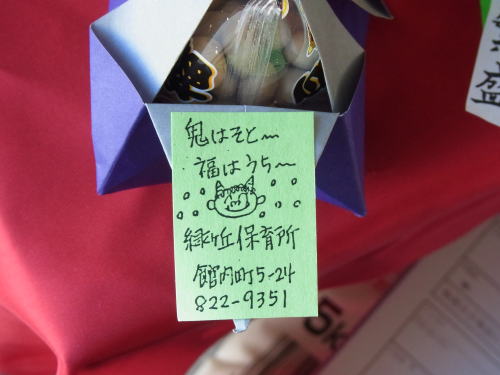 鬼はそと〜
福はうち〜
緑ヶ丘保育所
館内町5-24
822-9351
盛
5K